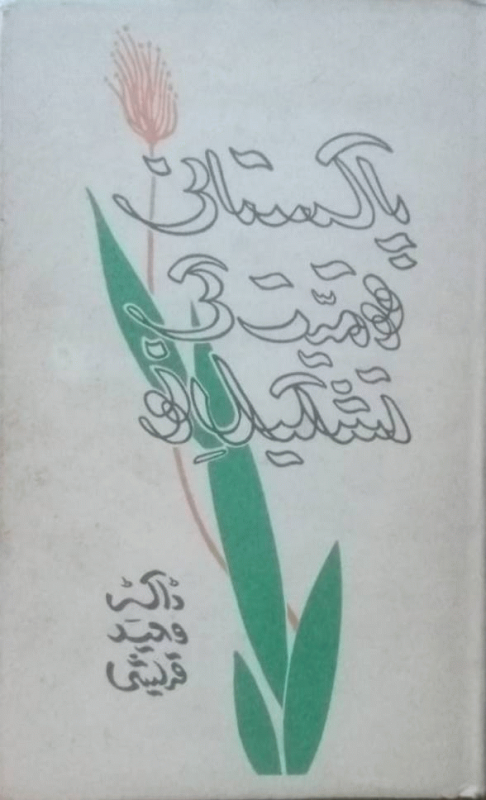 پاکستانی
قومیت کی
تشکیلِ نو
ڈاکٹر
وحید
قریشی